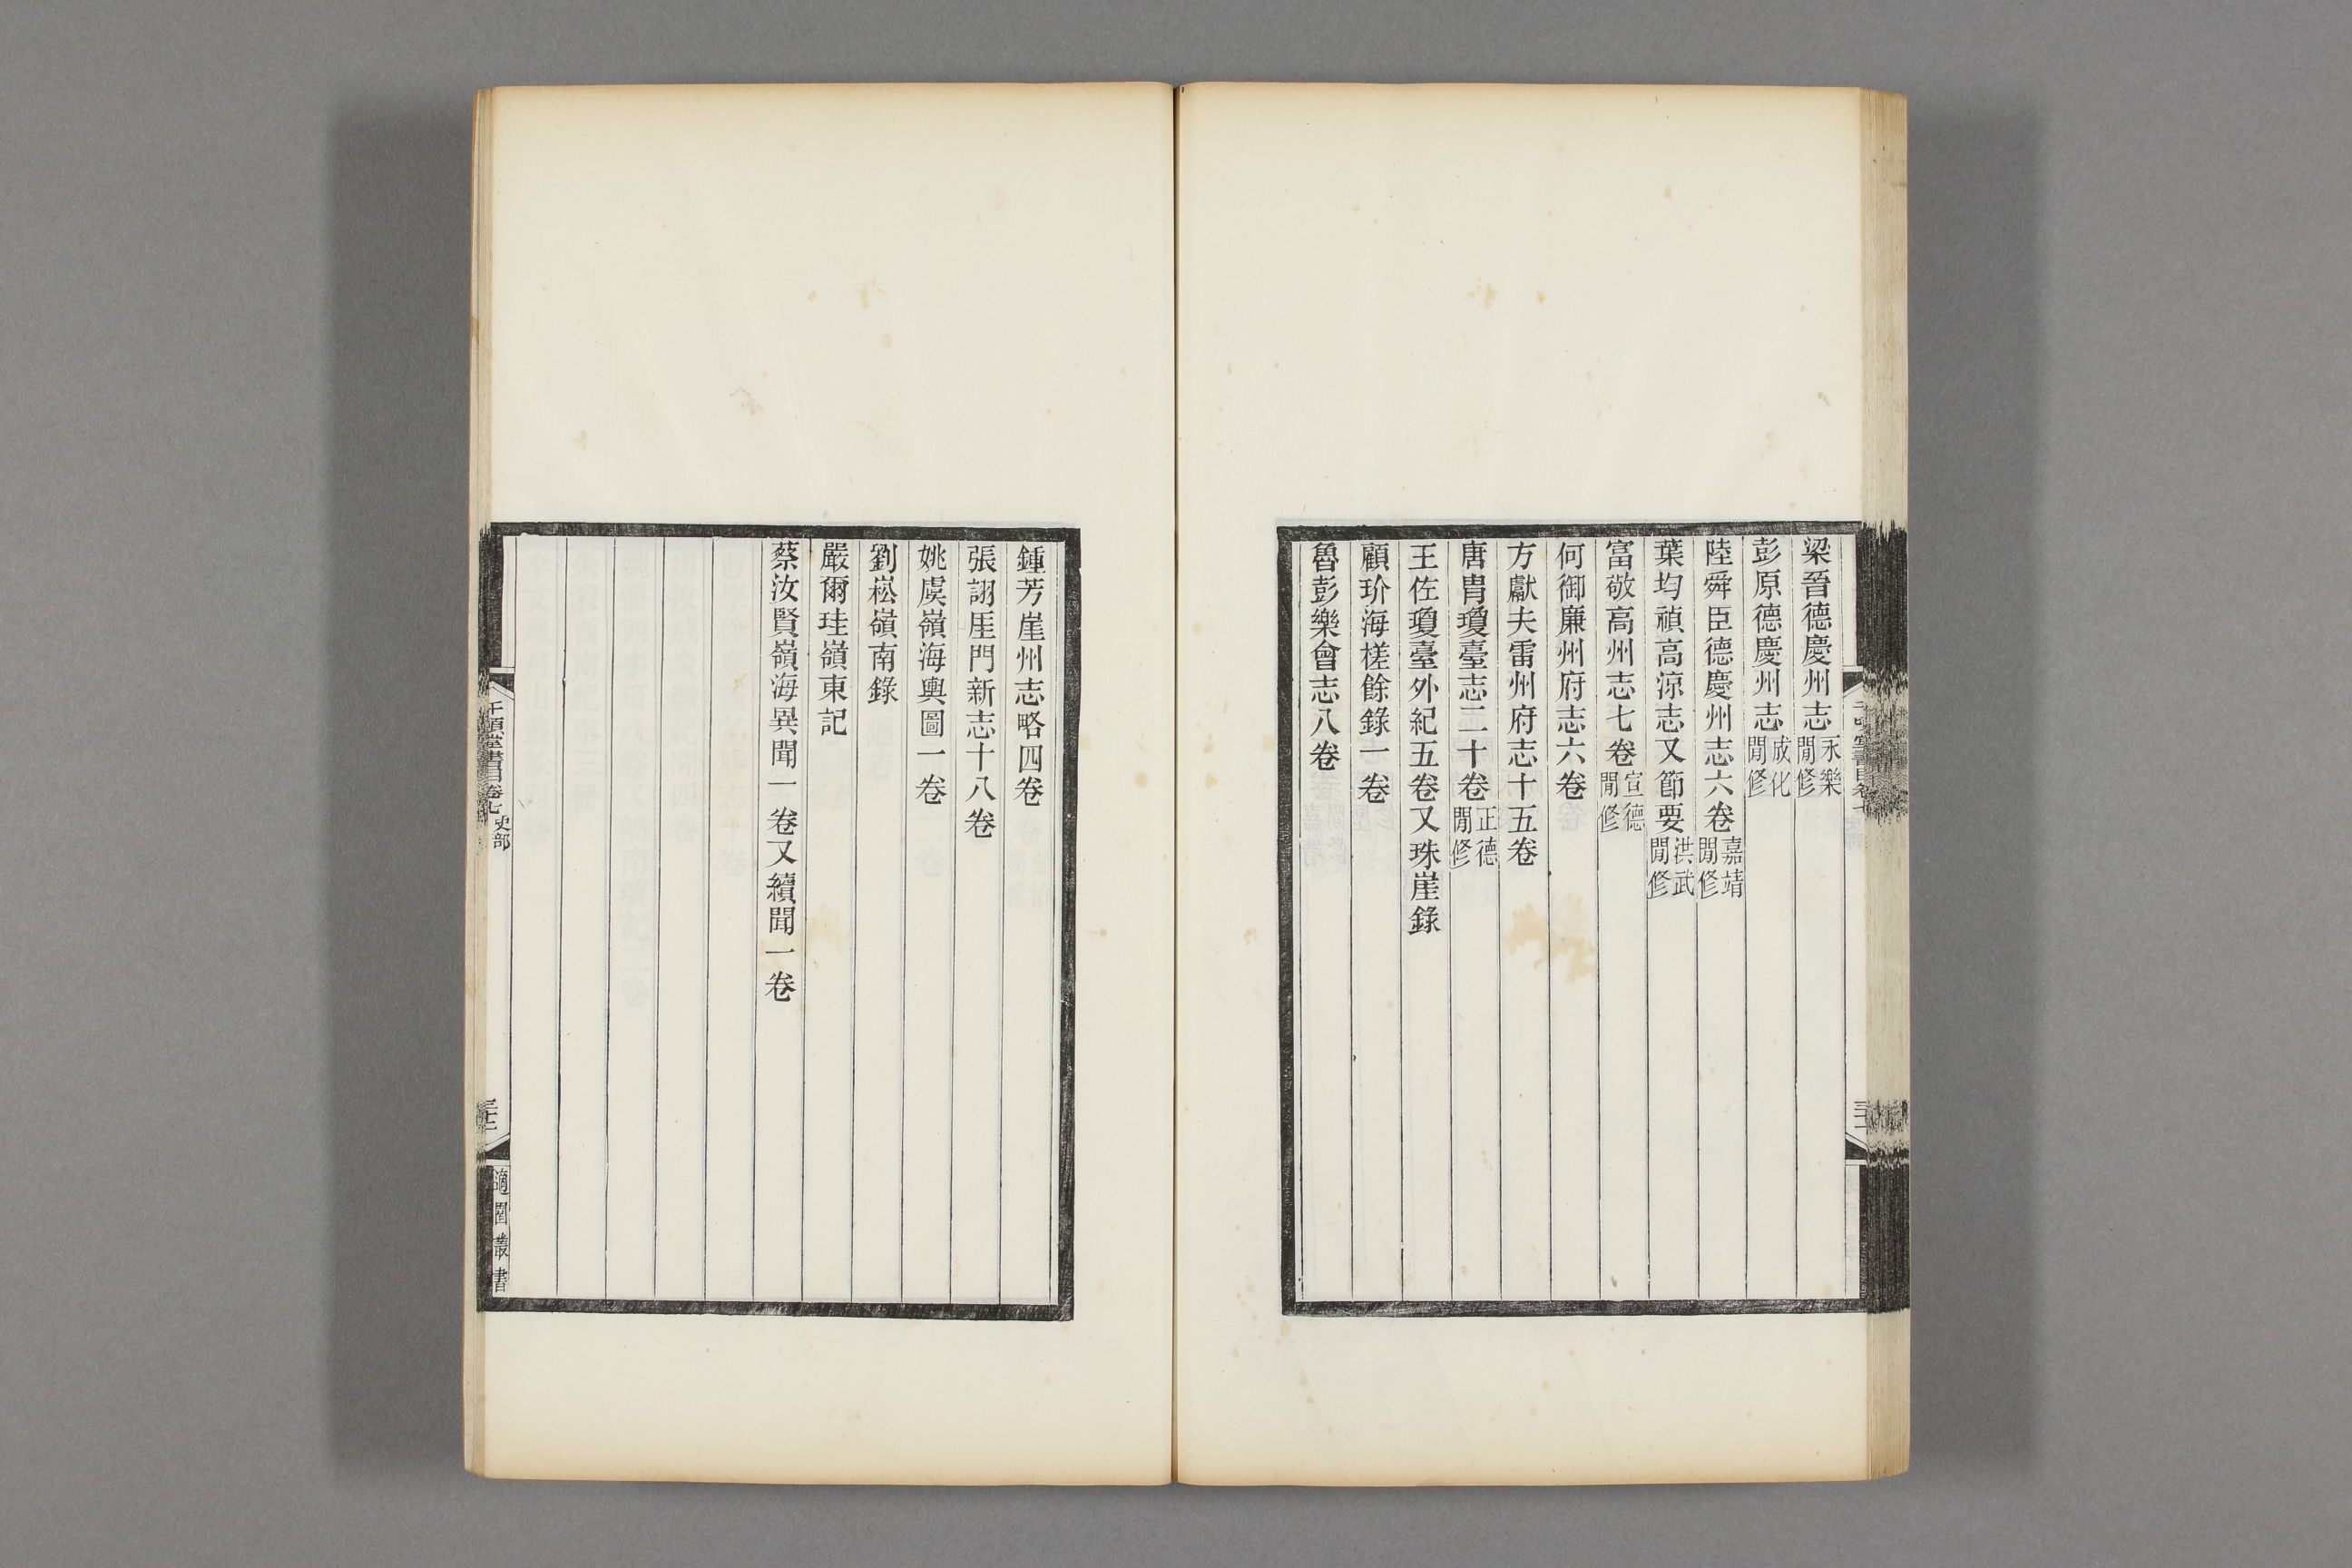 梁晉德慶州志永樂閒修
彭原德慶州志成化閒修
陸舜臣德慶州志六卷嘉靖閒修
葉均禎高涼志又節要洪武閒修
富敬高州志七卷宣德閒修
何御廉州府志六卷
方獻夫雷州府志十五卷
唐胄瓊臺志二十卷正德閒修
王佐瓊臺外紀五卷又珠崖錄
顧玠海槎餘錄一卷
魯彭樂會志八卷
鍾芳崖州志略四卷
張詡厓門新志十八卷
姚虞嶺海輿圖一卷
劉崧嶺南錄
嚴爾珪嶺東記
蔡汝賢嶺海異聞一卷又續聞一卷
千頃堂書目卷七 史部
適園叢書